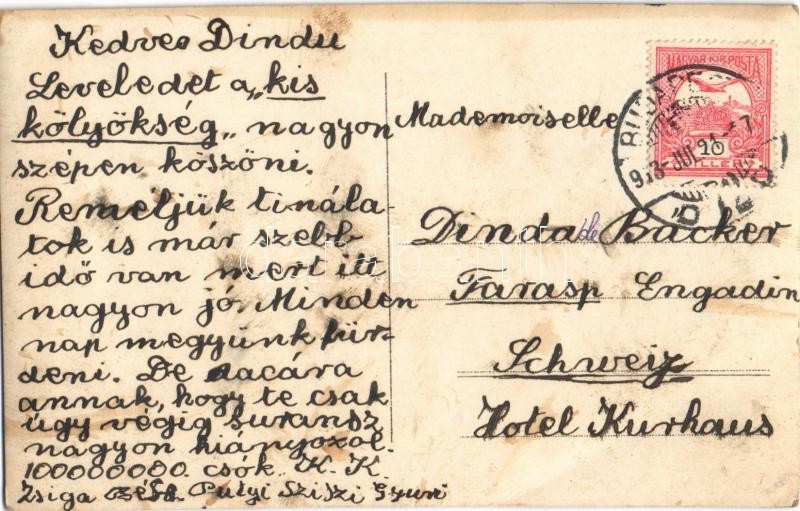 Kedves Dindu
Leveledet a „kis
kölyökség„ nagyon
szépen köszöni.
Remeljük tinála-
tok is már szebb
idő van mert itt
nagyon jó. Minden
nap megyünk für-
deni. De dacára
annak, hogy te csak
úgy végig suransz
nagyon hiányozol.
100000000. csók. K. K.
Zsiga Putyi Sziszi Gyuri
Mademoiselle
Dinda de Backer
Farasp Engadin
Schweiz
Hotel Kurhaus
MAGYAR KIR. POSTA
10
FILLÉR
BUDAPEST
913 JUL 21
darabanth